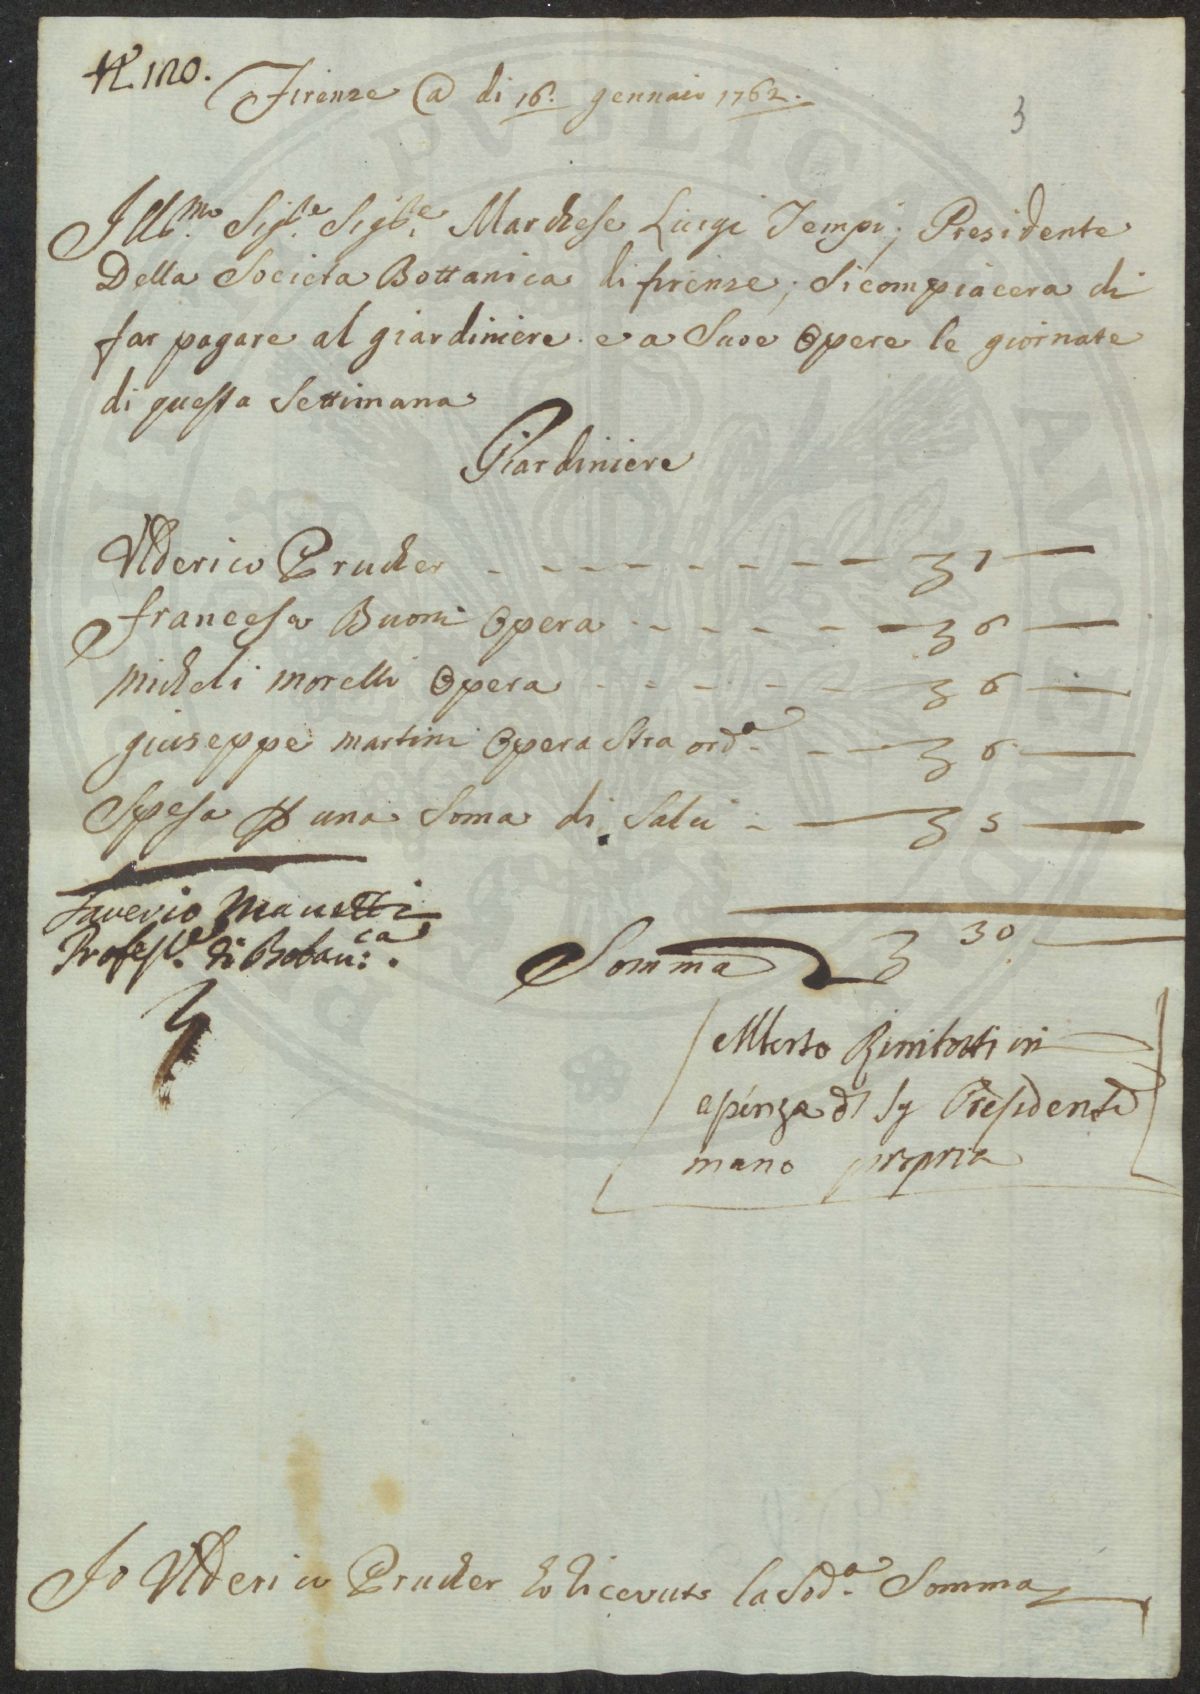 N.º 120.
Firenze @ di 16. gennaio 1762.
3
Ill.mo Sig.re Sig.re Marchese Luigi Tempi; Presidente
Della Societa Bottanica di firenze; Si compiacera di
far pagare al giardiniere e a Suoe Opere le giornate
di questa Settimana
Giardiniere
Ulderico Prucher 7
francescho Buoni Opera 6
Micheli morelli Opera 6
giuseppe martini Opera Straord.a 6
Spesa p una Soma di Salci 5
Saverio Manetti
Profess.re di Botan:ca.
Somma 30
Alberto Rimbotti in
del Sig Presidente
mano propria
Io Ulderico Prucher ho Ricevuto la Sod.a Somma